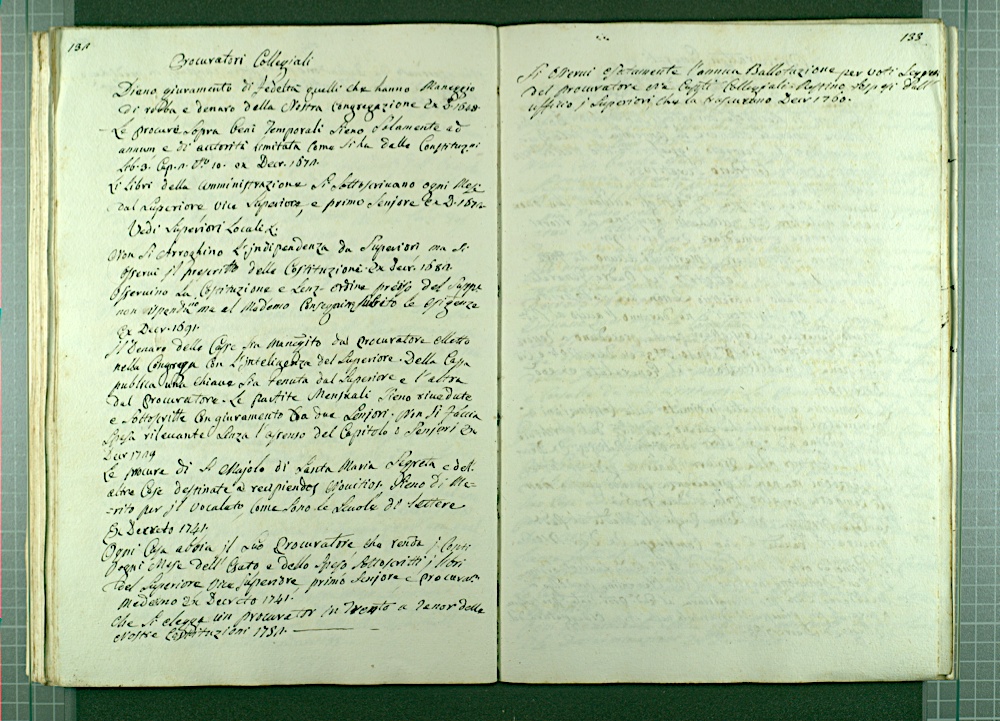 132
Procuratori Collegiali
Dieno giuramento di fedeltà quelli che hanno Maneggio
di robba e denaro della Nostra Congregazione Ex D. 1608
Le procure sopra beni Temporali sieno solamente ad
annum e di autorità limitata come si ha dalle Constituzni
lib. 3. Cap. 10. ex Decr. 1672.
Li libri della amministrazione si sottoscrivano ogni Mese
dal Superiore vice Superiore, e primo Seniore Ex D. 1672
Vedi Superiori Locali
Non si Arroghino L'indipendenza da Superiori ma si
osservi il prescritto delle Costituzioni Ex Decr. 1682.
Osservino la Costituzione e senz'ordine del Supre
non ma al Medemo le esigenze
Ex Decr. 1691.
Il Denaro delle Casse sia dal Procuratore eletto
nella Congrega con l'inteligenza del Superiore. Della Cassa
publica una chiave sia tenuta dal Superiore e l'altra
dal Procuratore. Le partite Mensuali sieno rivedute
e sottoscritte con giuramento da due Seniori. Non si faccia
spesa rilevante senza l'assenso del Capitolo o Seniori Ex
Decr 1719
Le procure di S. Majolo di Santa Maria Segreta e del:
altre Case destinate a recipiendos Novitios. Sieno di Me-
rito per il Vocalato, come sono le Scuole di lettere
Ex Decreto 1741.
Ogni Casa abbia il suo Procuratore che renda i Conti
d'ogni Mese dell'Esato e delle Spese sottoscritti i libri
del Superiore vice Superiore, primo Seniore e procurat.
Medesmo Ex Decreto 1741.
Che si elegga un procurator in Trento a tenor delle
Nostre Costituzioni 1751.
133
Si osservi esatamente l'annua Ballotazione per voti Segreti
del procuratore ed Essti Collegiali. Restino sospesi dall'
ufficio i Superiori che la trascurano Decr 1760.